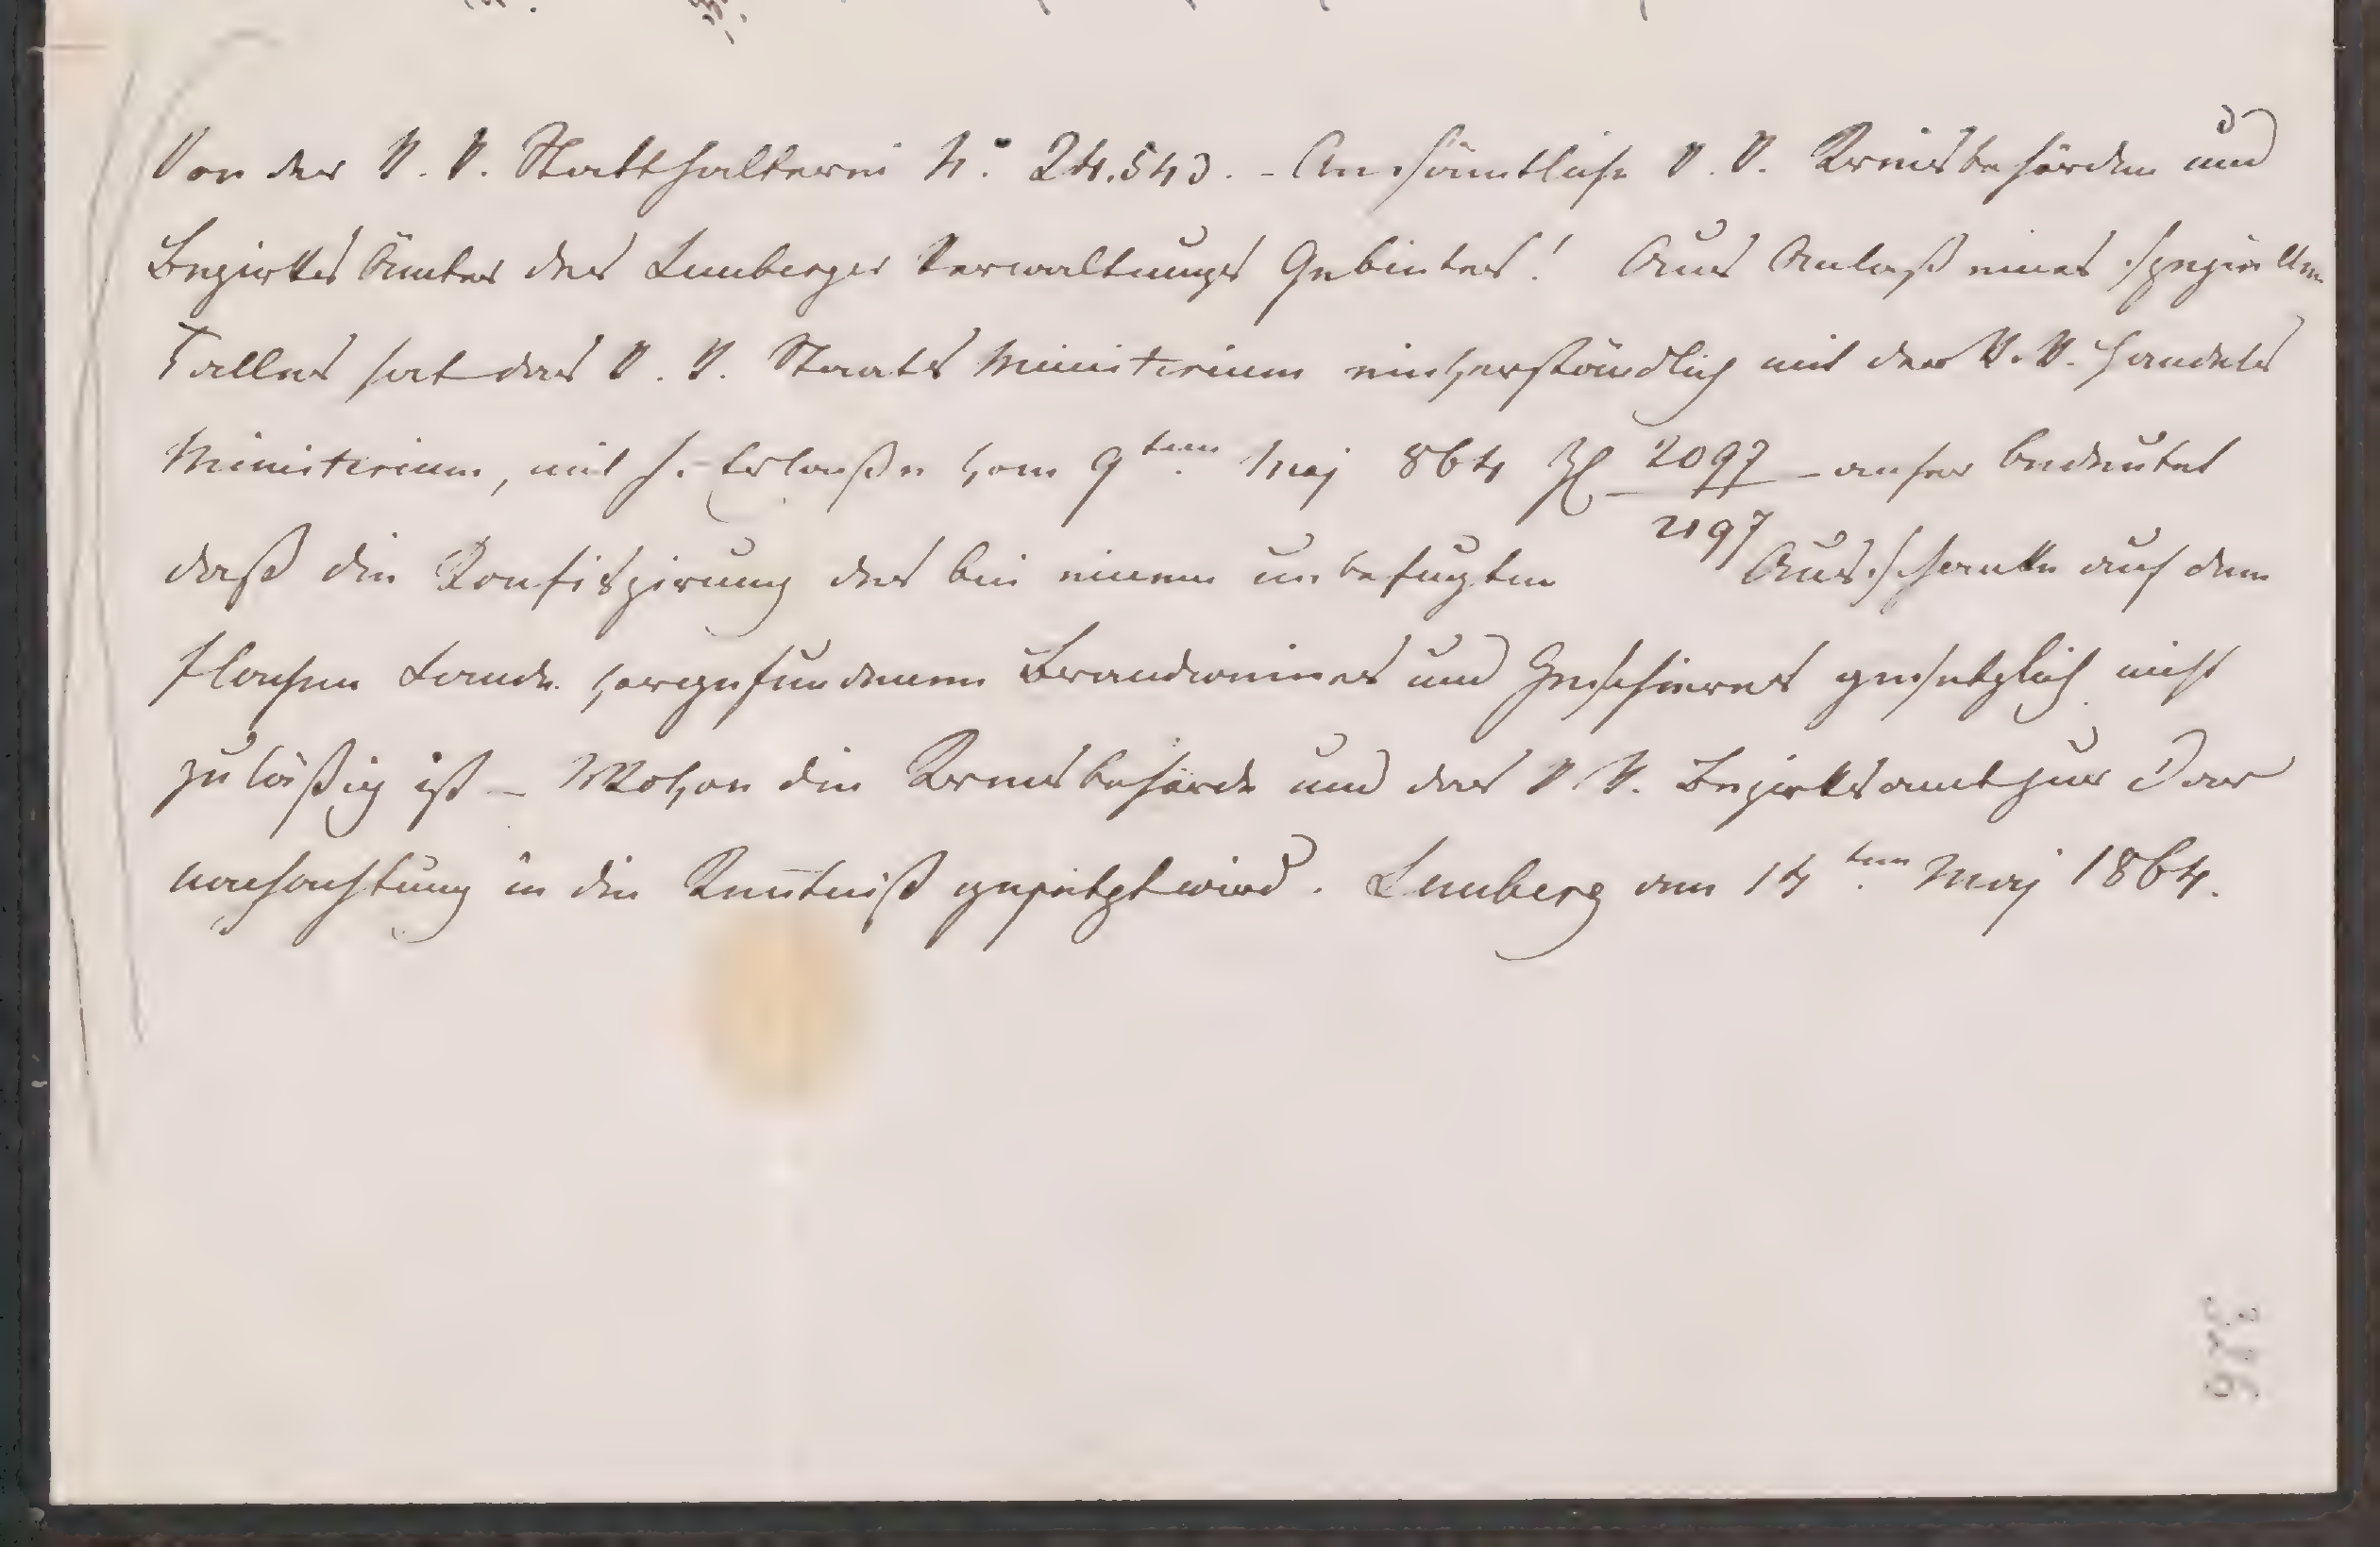 Von der K. K. Statthalterei N° 24.543. - An sämtliche K. K. Kreisbehörden und
Bezirks Ämter des Lemberger Verwaltungs Gebietes! Aus Anlaß eines speziellen
Falles hat das K. K. Staats Ministerium einverständlich mit dem K. K. Handels
Ministerium, mit h. Erlaße vom 9ten Maj 864 Zl 2097/2197 - anher bedeutet
daß die Konfiszirung des bei einem unbefugten Ausschanke auf dem
flachen Lande vorgefundenen Brandweines und Geschirres gesetzlich nicht
zuläßig ist - Wovon die Kreisbehörde und das K. K. Bezirksamt zur Dar
nachachtung in die Kentniß gesetzt wird. Lemberg am 14ten Maj 1864.